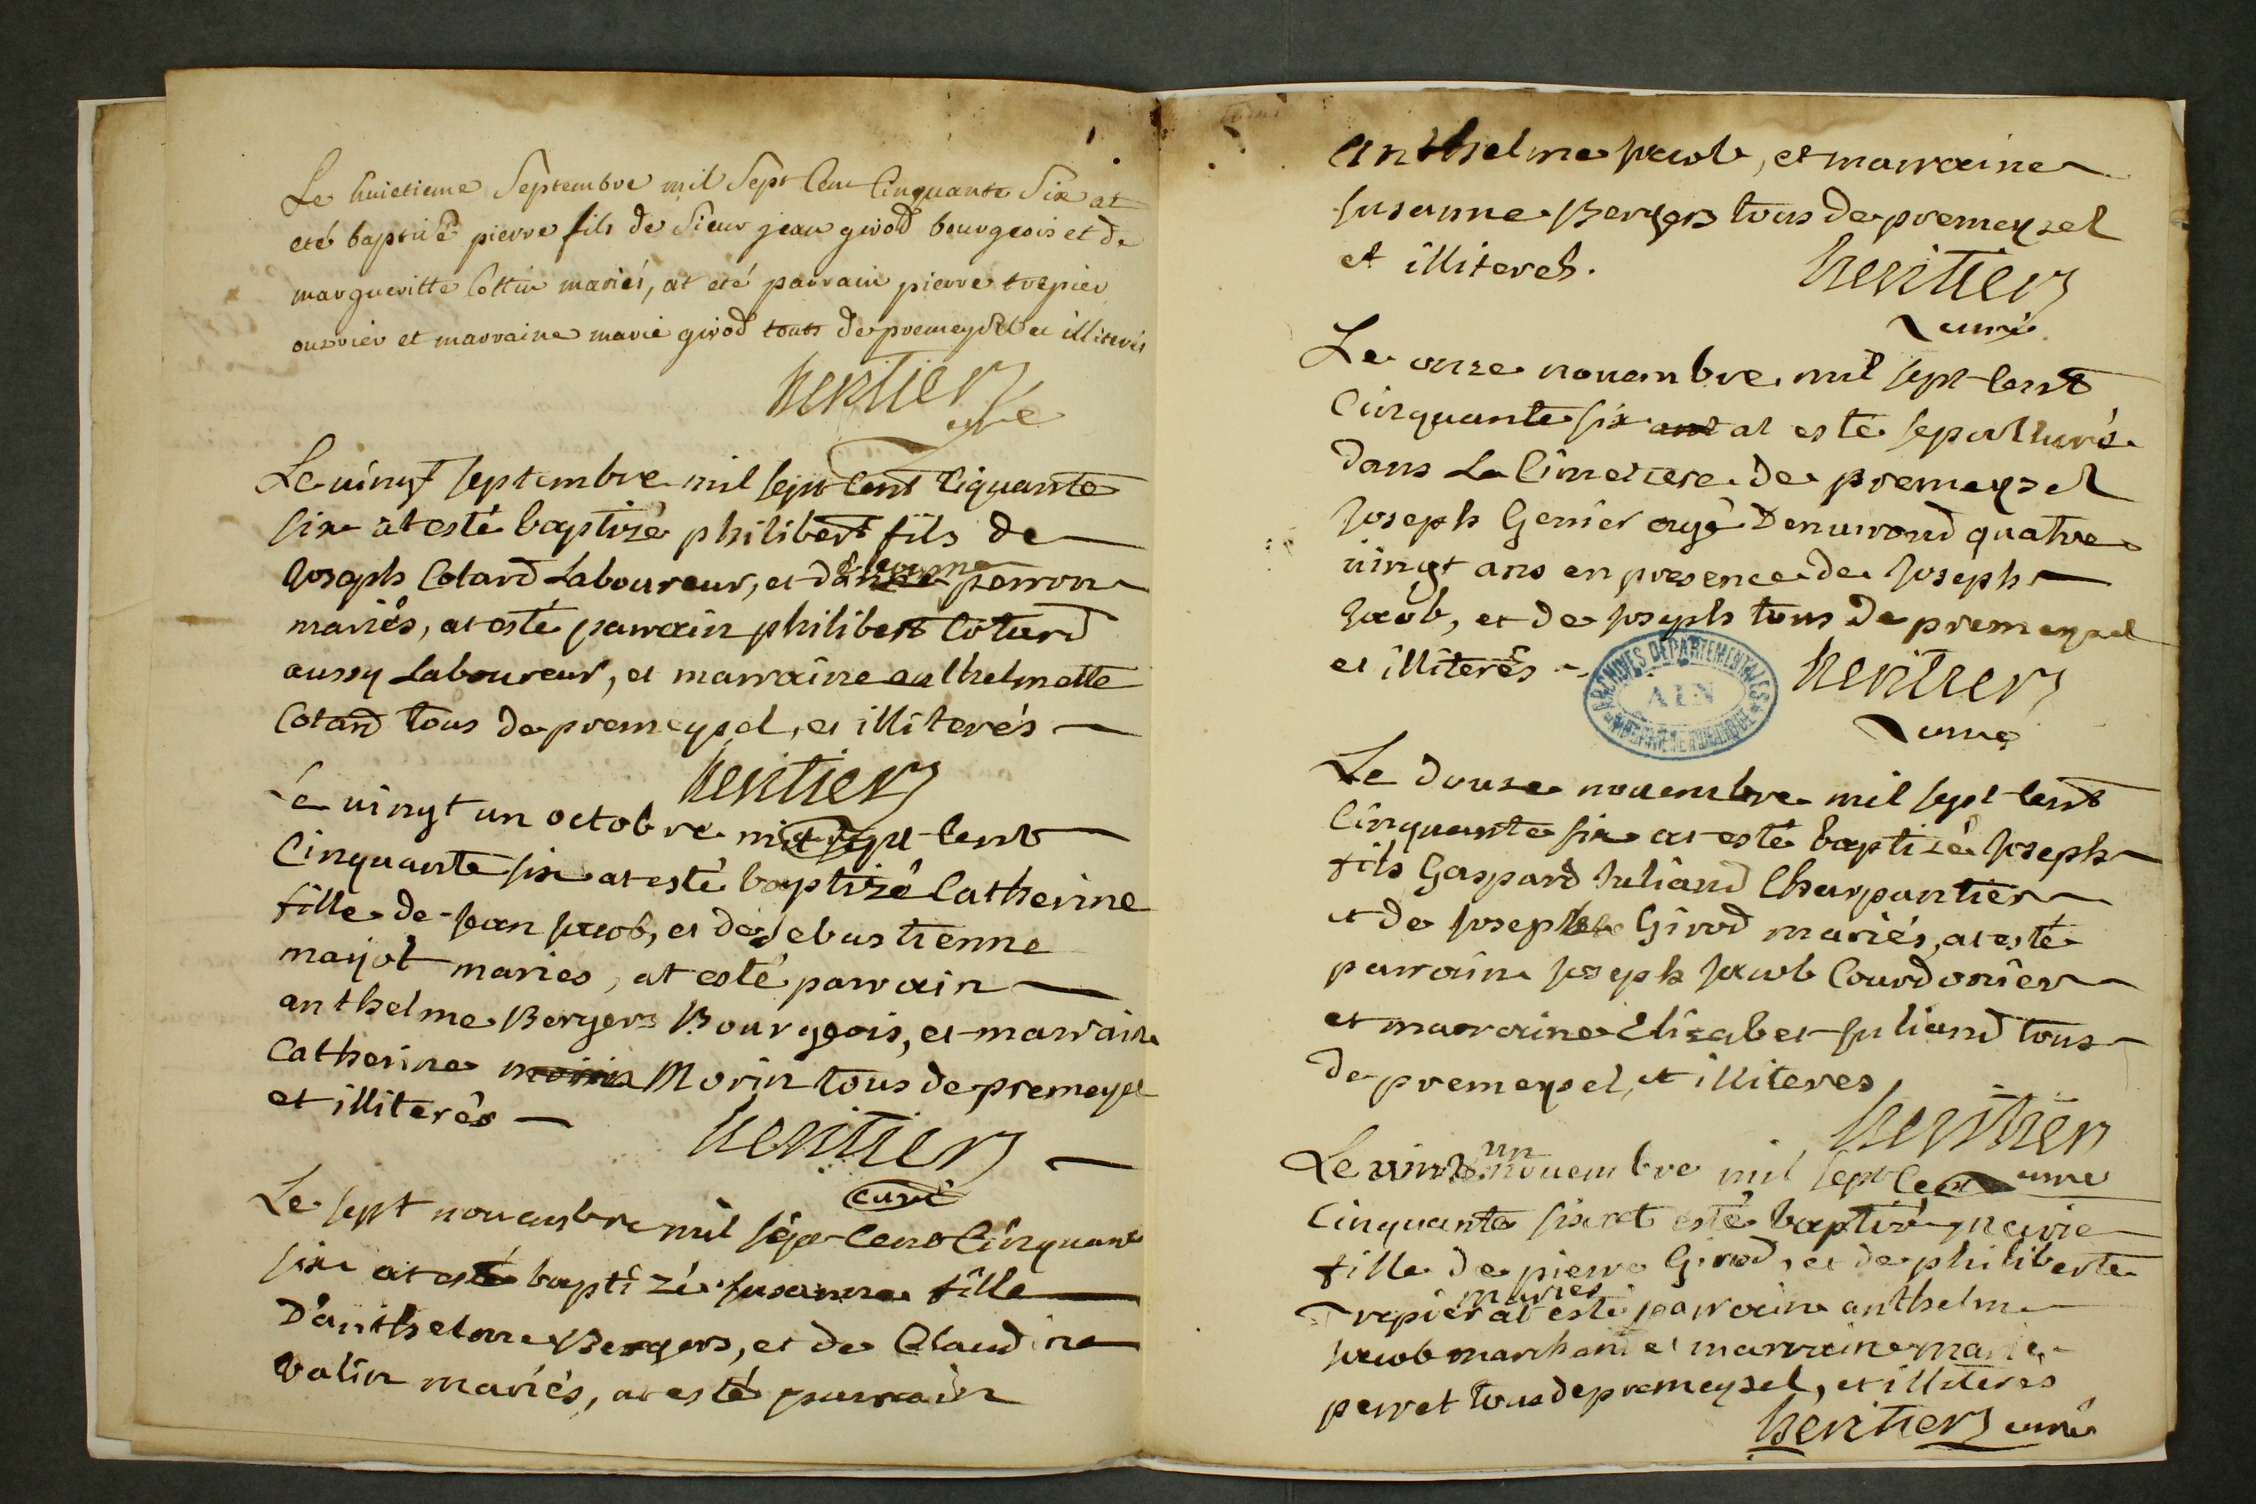 Le huietieme Septembre mil Sept Cent Cinquante Six at
eté baptisé pierre fils de Sieur jean girod bourgeois et de
margueritte Cottin mariés, at eté parrain pierre trepier
ouvrier et marraine marie girod touts de premeysel et illiterés
heritier
curé
Le vingt septembre mil sept cent ciquante
six at esté baptizé philibert fils de
Joseph Cotard Laboureur, et d'etienne perron
mariés, at esté parrain philibert Cotard
aussy Laboureur, et marraine anthelmette
Cotard tous de premeysel, et illiterés
heritier
Le vingt un octobre mil sept cent
Cinquante six at esté baptizé Catherine
fille de jean jacob, et de sebastienne
mayot maries, at esté parrain
anthelme Bergers Bourgeois, et marraine
Catherine Morin tous de premeysel
et illiterés
heritier
curé
Le sept novembre mil sept Cent Cinquante
six at esté baptizé susanne fille
D'anthelme Bergers, et de Claudine
Valin mariés, at esté parrain
anthelme jacob, et marraine
susanne Bergers tous de premeysel
et illiteres.
heritier
curé
Le onze novembre mil sept cent
Cinquante six at esté sepulturé
dans Le Cimetiere de premeysel
Joseph Genier agé Denviron quatre
vingt ans en presence de Joseph
Jacob, et de Joseph tous de premeysel
et illiterés
heritier
curé
ARCHIVES DEPARTEMENTALES
AIN
Le douze novembre mil sept cent
Cinquante six at esté baptizé Joseph
fils Gaspard Juliand Charpantier
et de Josephte Girod mariés, at esté
parrain Joseph Jacob Courdonier
et marraine Elizabet Juliand tous
de premeysel, et illiteres
heritier
curé
Le vingt un novembre mil sept Cent
Cinquante six at esté baptizé marie
fille de pierre Girod, et de philiberte
Trepier maries at esté parrain anthelme
Jacob marchand et marraine marie
perret tous de premeysel, et illiteres
heritier curé